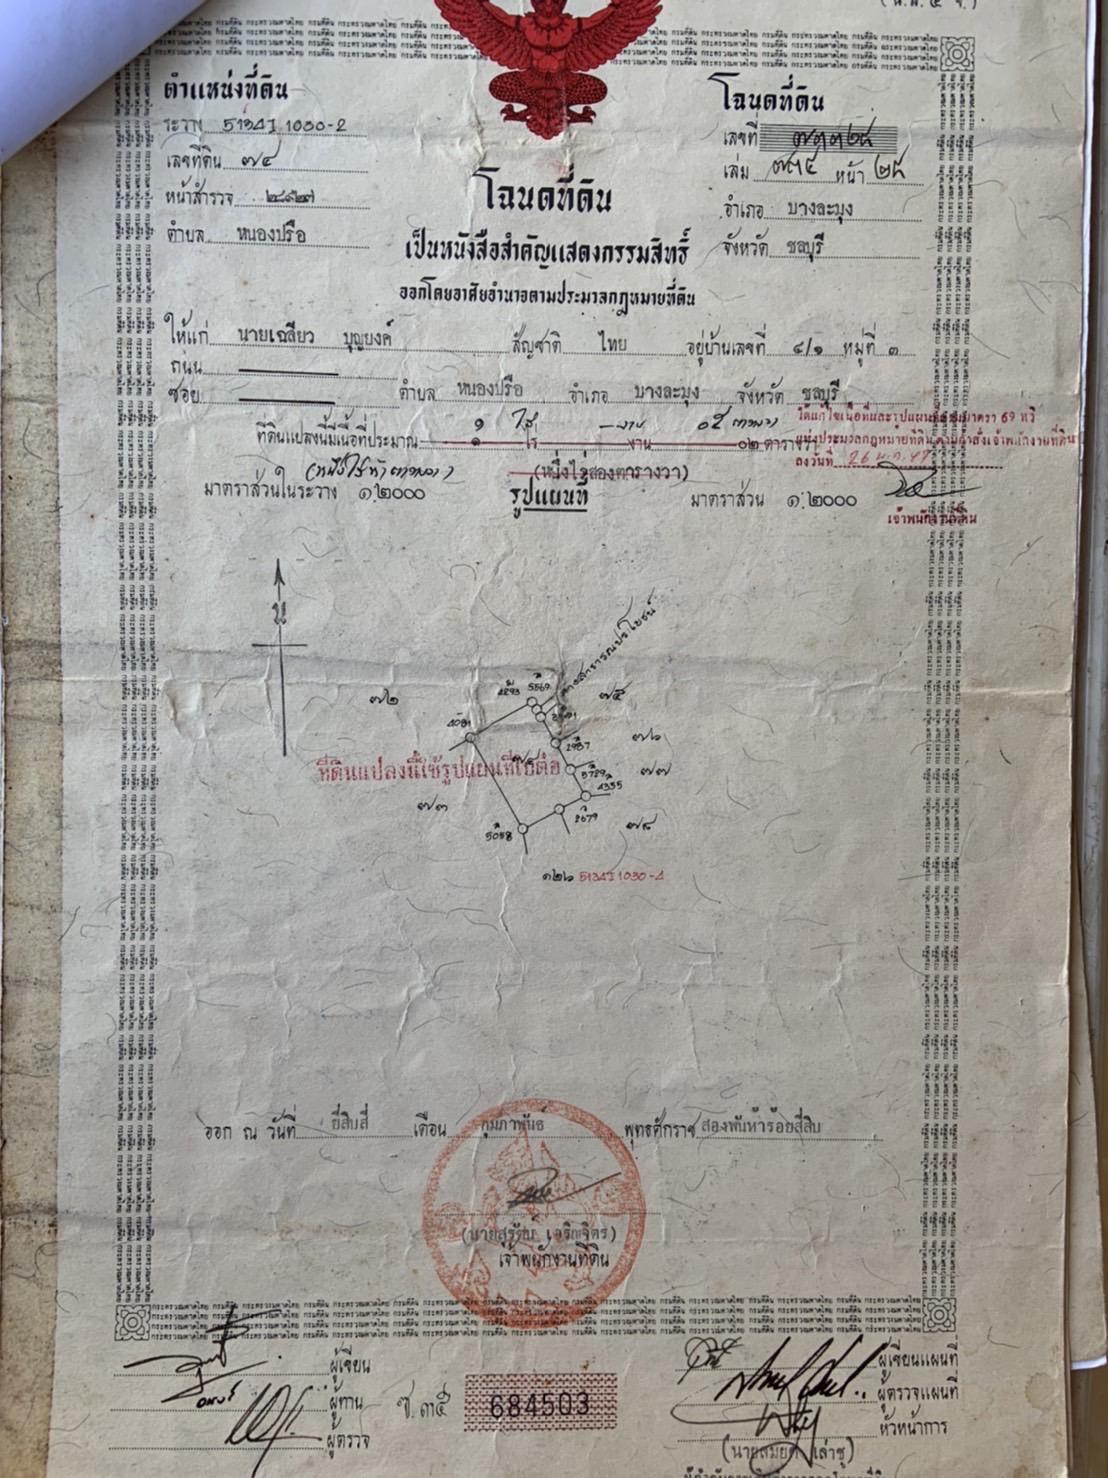 (น.ส.๔ จ.)
ตำแหน่งที่ดิน
ระวาง 5134I 1030-2
เลขที่ดิน ๗๔
หน้าสำรวจ
ตำบล หนองปรือ
โฉนดที่ดิน
เลขที่ ๗๓๓๒๘
เล่ม ๗๓๔ หน้า ๒๘
อำเภอ บางละมุง
จังหวัด ชลบุรี
โฉนดที่ดิน
เป็นหนังสือสำคัญแสดงกรรมสิทธิ์
ออกโดยอาศัยอำนาจตามประมวลกฎหมายที่ดิน
ให้แก่ นายเฉลียว บุญยงค์ สัญชาติ ไทย อยู่บ้านเลขที่ ๔/๑ หมู่ที่ ๓
ถนน
ซอย ตำบล หนองปรือ อำเภอ บางละมุง จังหวัด ชลบุรี
๑ ไร่ - งาน ๐๕ ตารางวา
ได้แก้ไขเนื้อที่และรูปแผนที่ตามมาตรา 69 ทวิ
ที่ดินแปลงนี้มีเนื้อที่ประมาณ ๑ ไร่ งาน ๐๒ ตารางวา
แห่งประมวลกฎหมายที่ดิน ตามคำสั่งเจ้าพนักงานที่ดิน
ลงวันที่
(หนึ่งไร่ห้าตารางวา) (หนึ่งไร่สองตารางวา)
มาตราส่วนในระวาง ๑:๒๐๐๐ รูปแผนที่ มาตราส่วน ๑:๒๐๐๐
เจ้าพนักงานที่ดิน
น
ทางสาธารณประโยชน์
4293 5569
๗๒ ๗๕
4081
๗๖
2987
ที่ดินแปลงนี้ใช้รูปแผนที่ใบต่อ
5789 ๗๗
4355
๗๓
2679 ๗๘
5088
๑๒๖ 5134I 1030-4
ออก ณ วันที่ ยี่สิบสี่ เดือน กุมภาพันธ์ พุทธศักราช สองพันห้าร้อยสี่สิบ
เจ้าพนักงานที่ดิน
ผู้เขียน
ผู้ทาน
ผู้ตรวจ
ช.๓๕
684503
ผู้เขียนแผนที่
ผู้ตรวจแผนที่
หัวหน้าการ